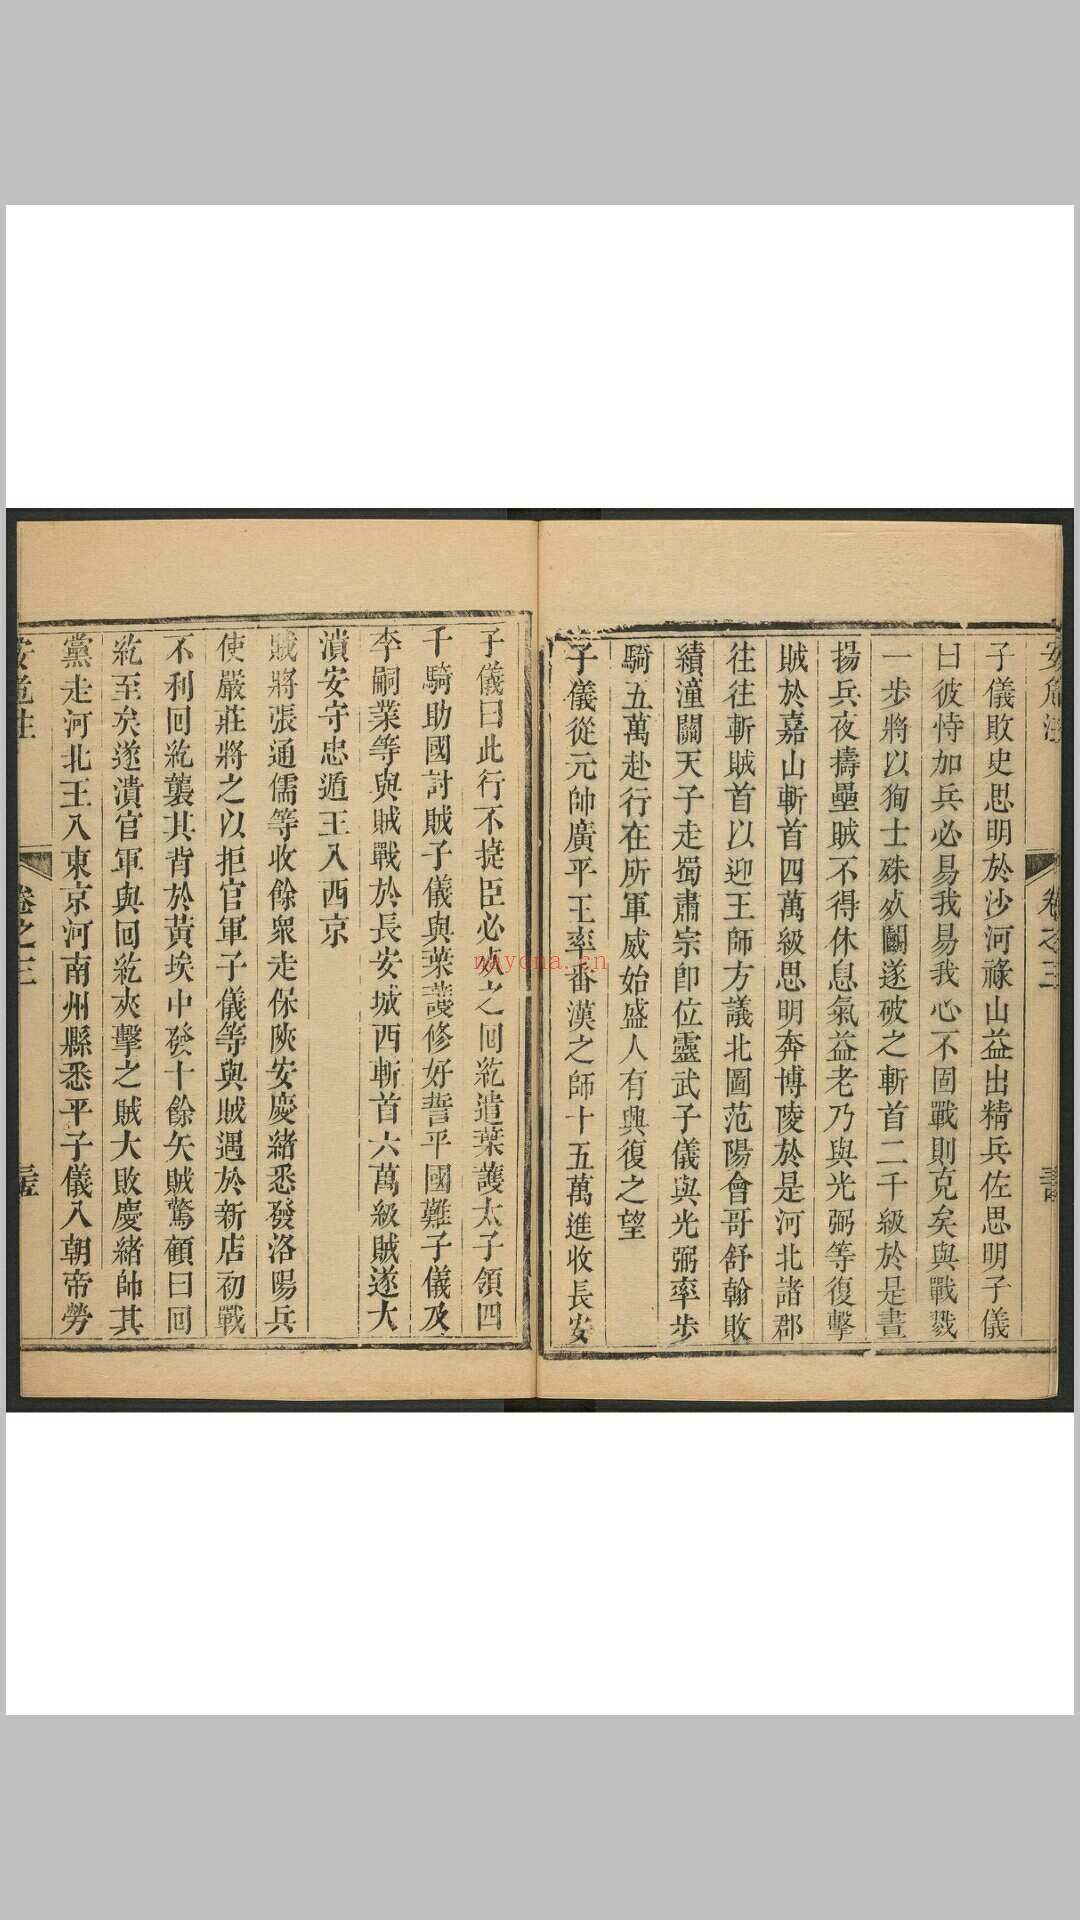 卷之三
子儀敗史思明於沙河祿山益出精兵佐思明子儀
曰彼恃加兵必易我易我心不固戰則克矣與戰戮
一步將以狥士殊死鬬遂破之斬首二千級於是晝
揚兵夜擣壘賊不得休息氣益老乃與光弼等復擊
賊於嘉山斬首四萬級思明奔博陵於是河北諸郡
往往斬賊首以迎王師方議北圖范陽會哥舒翰敗
績潼關天子走蜀肅宗卽位靈武子儀與光弼率步
騎五萬赴行在所軍威始盛人有興復之望
子儀從元帥廣平王率番漢之師十五萬進收長安
子儀曰此行不捷臣必死之回紇遣葉護太子領四
千騎助國討賊子儀與葉護修好誓平國難子儀及
李嗣業等與賊戰於長安城西斬首六萬級賊遂大
潰安守忠遁王入西京
賊將張通儒等收餘衆走保陝安慶緒悉發洛陽兵
使嚴莊將之以拒官軍子儀等與賊遇於新店初戰
不利回紇襲其背於黃埃中發十餘矢賊驚顧曰回
紇至矣遂潰官軍與回紇夾擊之賊大敗慶緒帥其
黨走河北王入東京河南州縣悉平子儀入朝帝勞
卷之三
nayona.cn